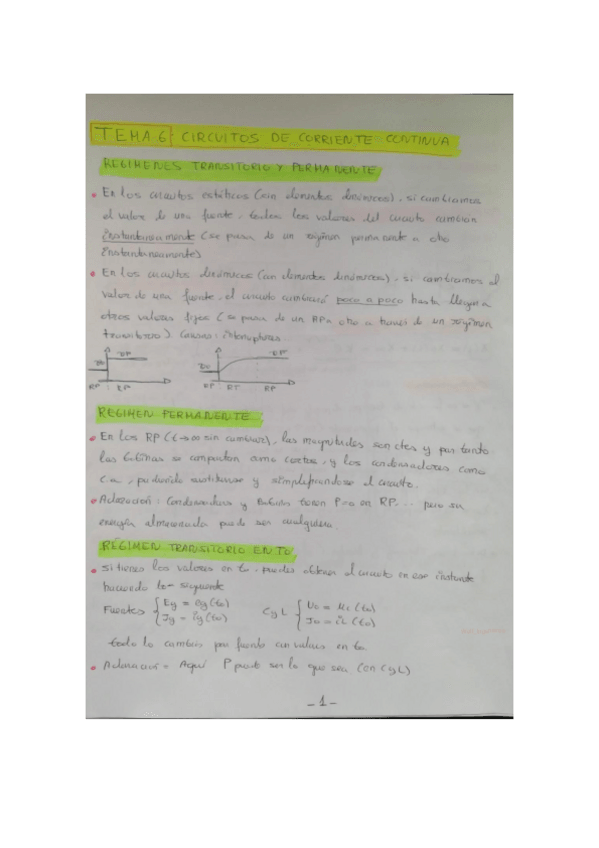 TEMA 6 CIRCUITOS DE CORRIENTE CONTINUA
REGIMENES TRANSITORIO Y PERMANENTE
• En los circuitos estáticos (sin elementos dinámicos), si cambiamos
el valor de una fuente, todos los valores del circuito cambian
instantáneamente (se pasa de un régimen permanente a otro
instantáneamente)
• En los circuitos dinámicos (con elementos dinámicos), si cambiamos el
valor de una fuente, el circuito cambiará poco a poco hasta llegar a
otros valores fijos (se pasa de un RP a otro a través de un régimen
transitorio). Causas: interruptores
RP RP RP RT RP
REGIMEN PERMANENTE
• En los RP (t→∞ sin cambiar), las magnitudes son ctes y por tanto
las bobinas se comportan como cortos, y los condensadores como
c.a., pudiendo sustituirse y simplificándose el circuito.
• Aclaración: Condensadores y bobinas tienen P=0 en RP... pero su
energía almacenada puede ser cualquiera.
RÉGIMEN TRANSITORIO EN To
• si tienes los valores en to, puedes obtener el circuito en ese instante
haciendo lo siguiente
Fuentes { Eg = eg(to) C y L { Uo = uc(to)
Jg = ig(to) Jo = iL(to)
todo lo cambias por fuente con valores en to
• Aclaración = Aquí P puede ser lo que sea (en C y L)
- 1 -